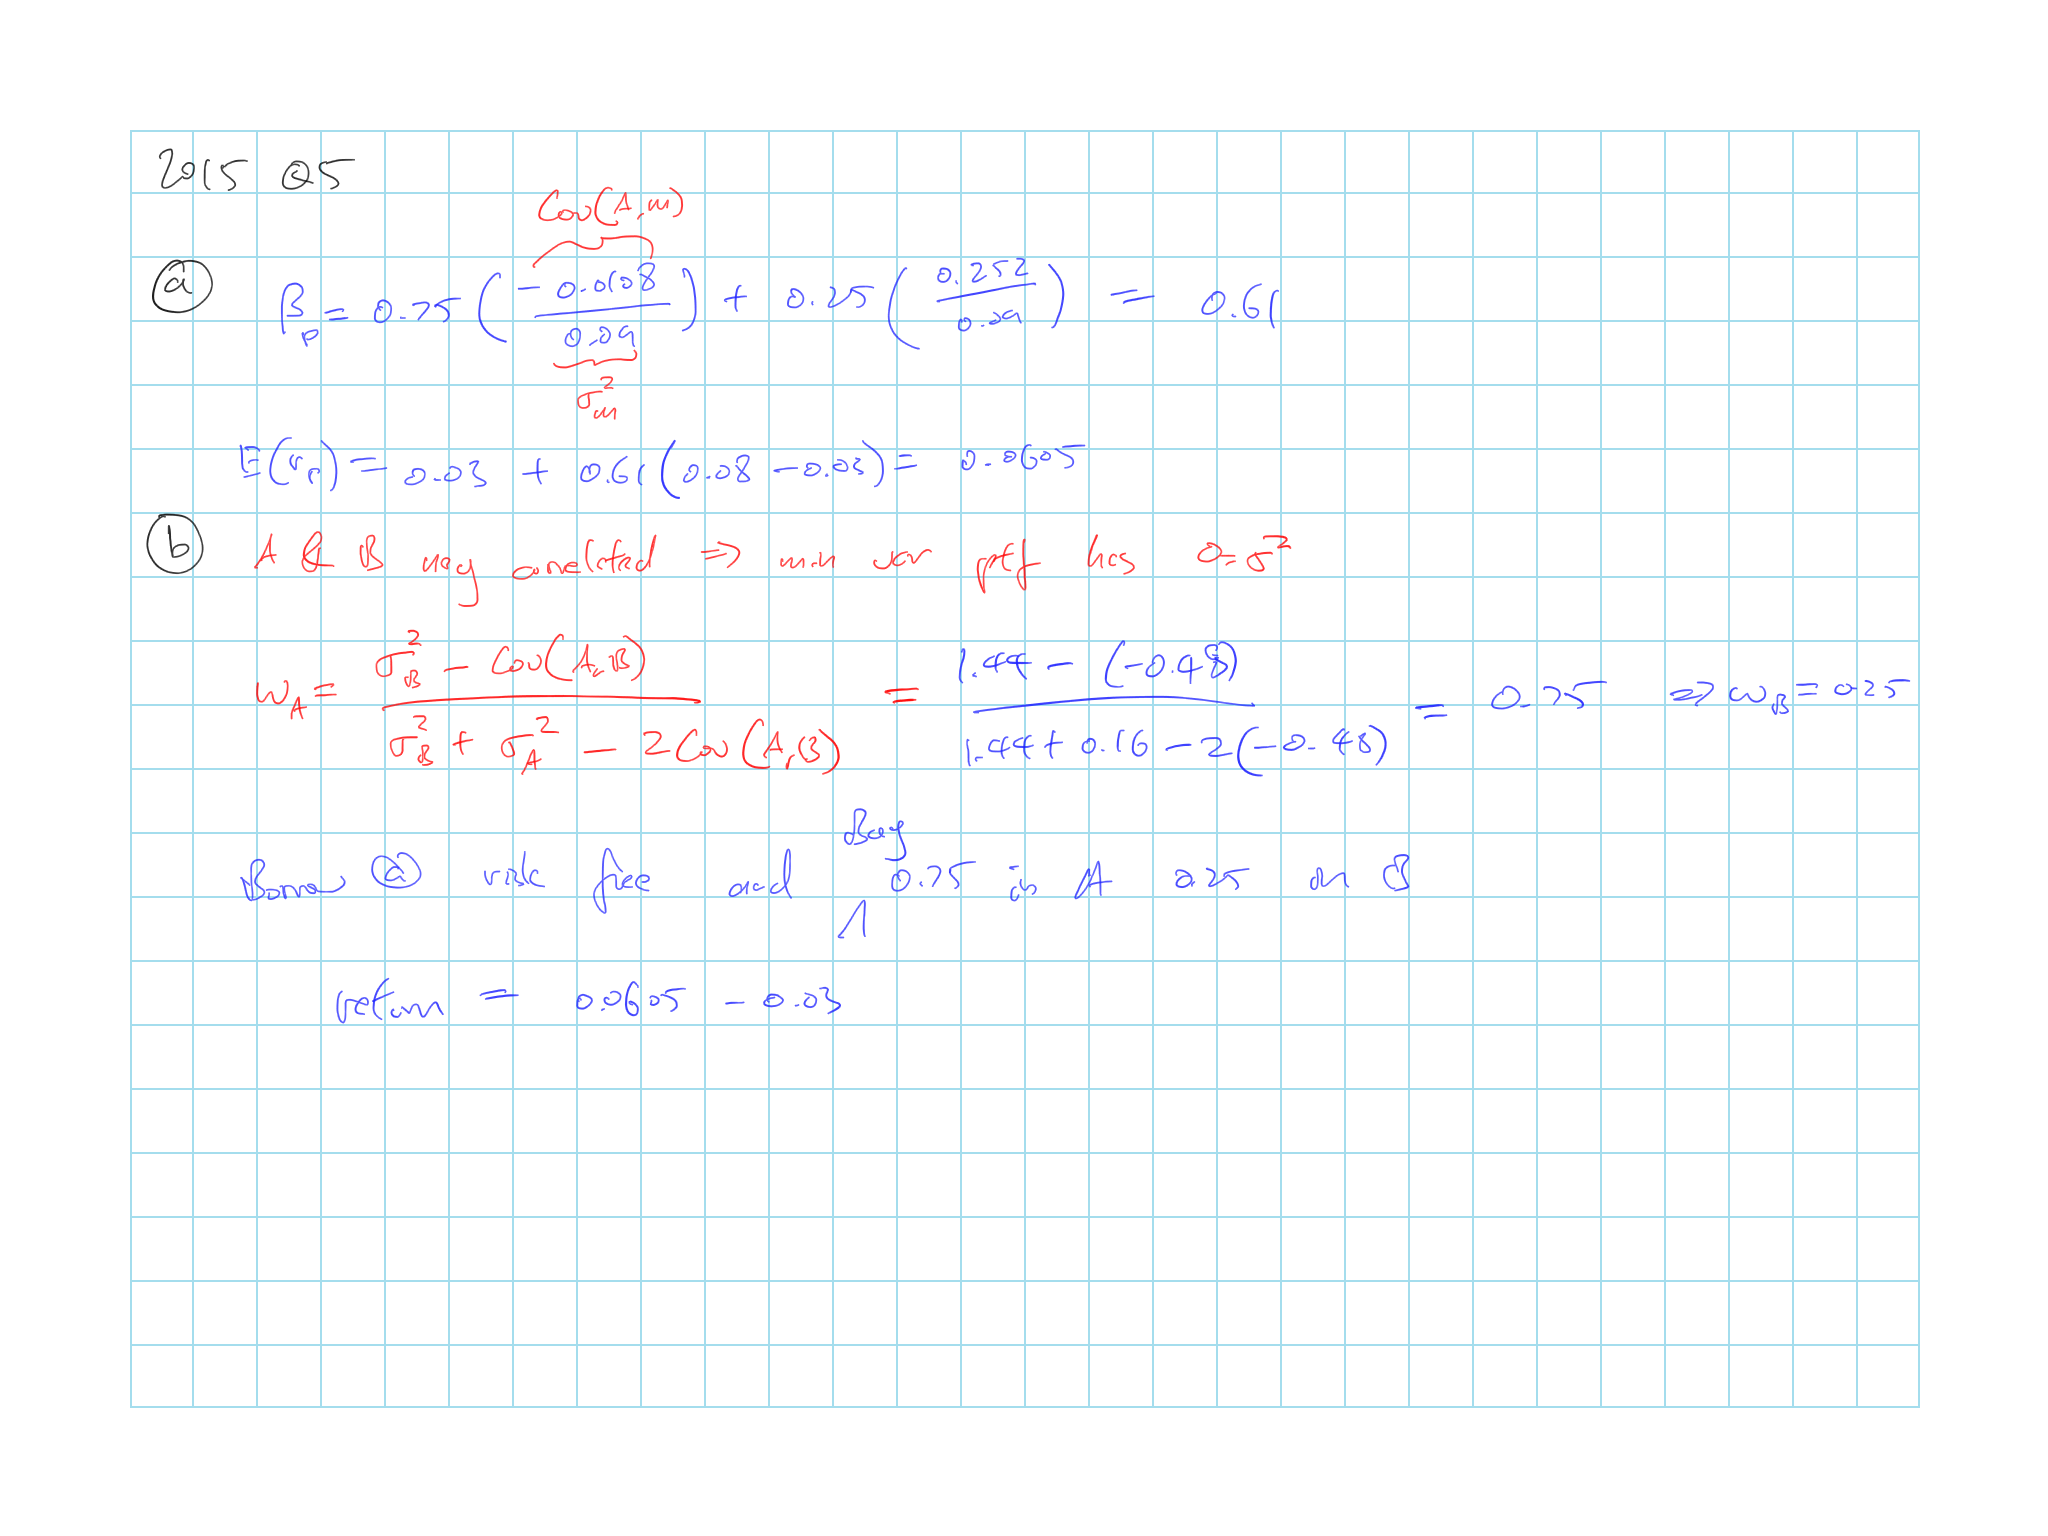 2015 Q5
Cov(A,m)
(a) βp = 0.75 ( -0.0108 / 0.09 ) + 0.25 ( 0.252 / 0.09 ) = 0.61
σm²
E(rp) = 0.03 + 0.61 (0.08 - 0.03) = 0.0605
(b) A & B neg correlated ⇒ min var ptf has 0=σ²
wA = σB² - Cov(A,B) / σB² + σA² - 2Cov(A,B) = 1.44 - (-0.48) / 1.44 + 0.16 - 2(-0.48) = 0.75 ⇒ wB = 0.25
Buy
Borrow @ risk free and 0.75 in A 0.25 in B
return = 0.0605 - 0.03